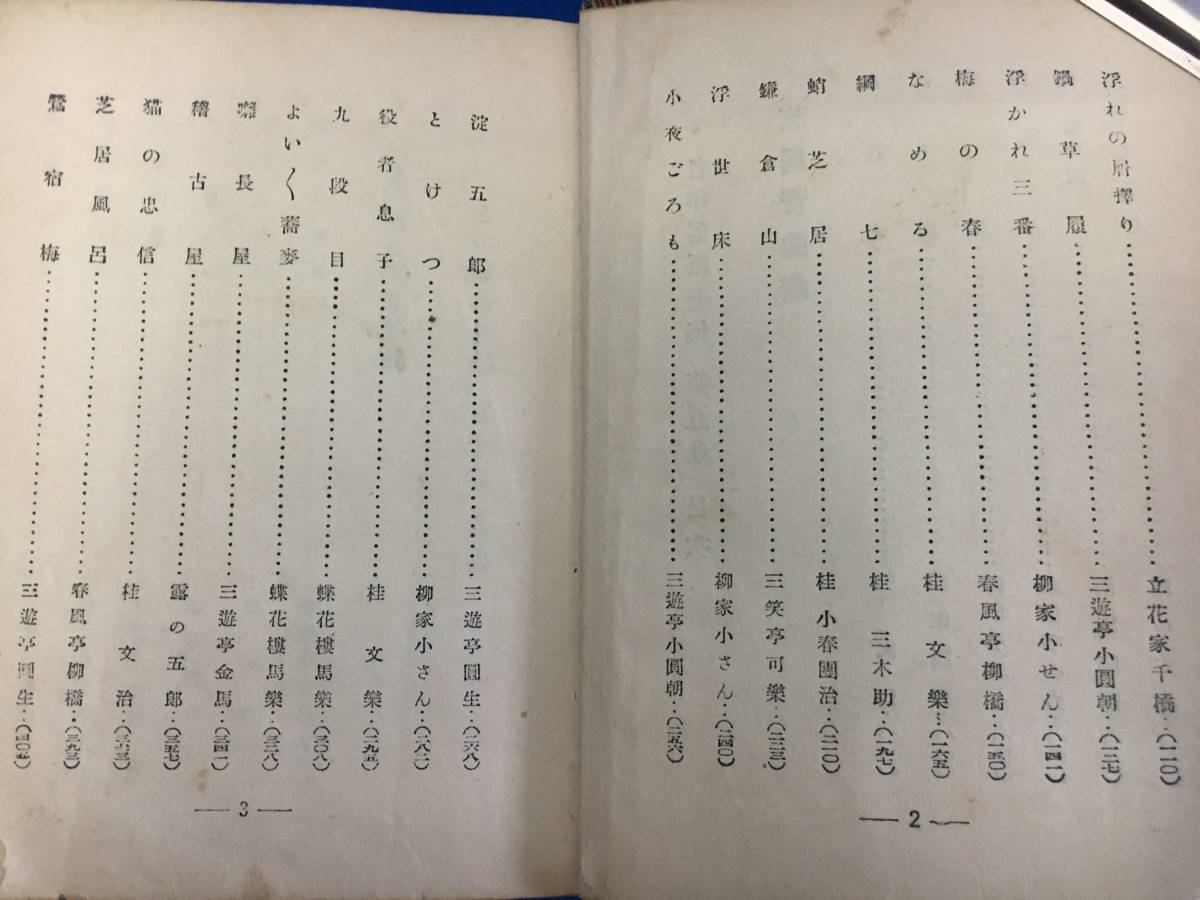 浮れの屑擇り……立花家千橋…(一一〇)
鍋草履……三遊亭小圓朝…(一二七)
浮かれ三番……柳家小せん…(一四一)
梅の春……春風亭柳橋…(一五〇)
なめる……桂文樂…(一六五)
綱七……桂三木助…(一九七)
蛸芝居……桂小春團治…(二一〇)
鎌倉山……三笑亭可樂…(二三三)
浮世床……柳家小さん…(二四〇)
小夜ごろも……三遊亭小圓朝…(二五六)
— 2 —
淀五郎……三遊亭圓生…(二六八)
とけつ……柳家小さん…(二八二)
役者息子……桂文樂…(二九五)
九段目……蝶花樓馬樂…(三〇八)
よい〱蕎麥……蝶花樓馬樂…(三二八)
囃長屋……三遊亭金馬…(三四一)
稽古屋……露の五郎…(三五七)
猫の忠信……桂文治…(三六三)
芝居風呂……春風亭柳橋…(三九三)
鶯宿梅……三遊亭圓生…(四〇五)
— 3 —